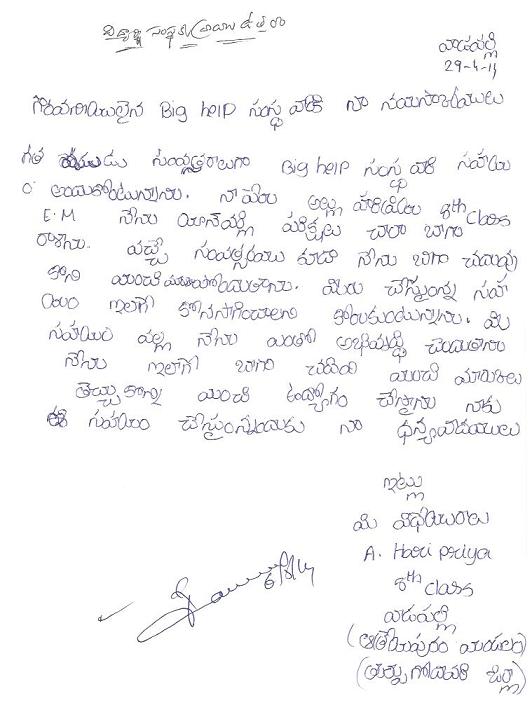 విద్యార్థి సంస్థకు వ్రాయు ఉత్తరం
వాడపల్లి
29-4-14
గౌరవనీయులైన Big help సంస్థ వారికి నా నమస్కారములు
గత మూడు సంవత్సరాలుగా Big help సంస్థ వారి సహాయ
o అందుకోంటున్నాను. నా పేరు అల్లు హరిప్రియ 8th class
E.M నేను యాన్యువల్లి పరిక్షలు చాలా బాగా
రాశాను. వచ్చే సంవత్సరము కూడా నేను బాగా చదువు
కొని మంచి మార్కులు. మీరు చేస్తున్న సహ
ాయం ఇలాగే కోనసాగించాలని కోరుకుంటున్నాను. మి
సహయం వల్ల నేను ఎంతో అభివృద్ధి చెందుతాను
నేను ఇలాగే బాగా చదివి మంచి మార్కులు
తెచ్చుకొన్ని మంచి ఉద్యోగం చేస్తాను నాకు
ఈ సహాయం చేస్తున్నందుకు నా ధన్యవాదములు
ఇట్లు
మి విధేయురాలు
A. Hari priya
8th class
వాడపల్లి
(ఆత్రేయపురం మండలం)
(తూర్పుగోదావరి జిల్లా)